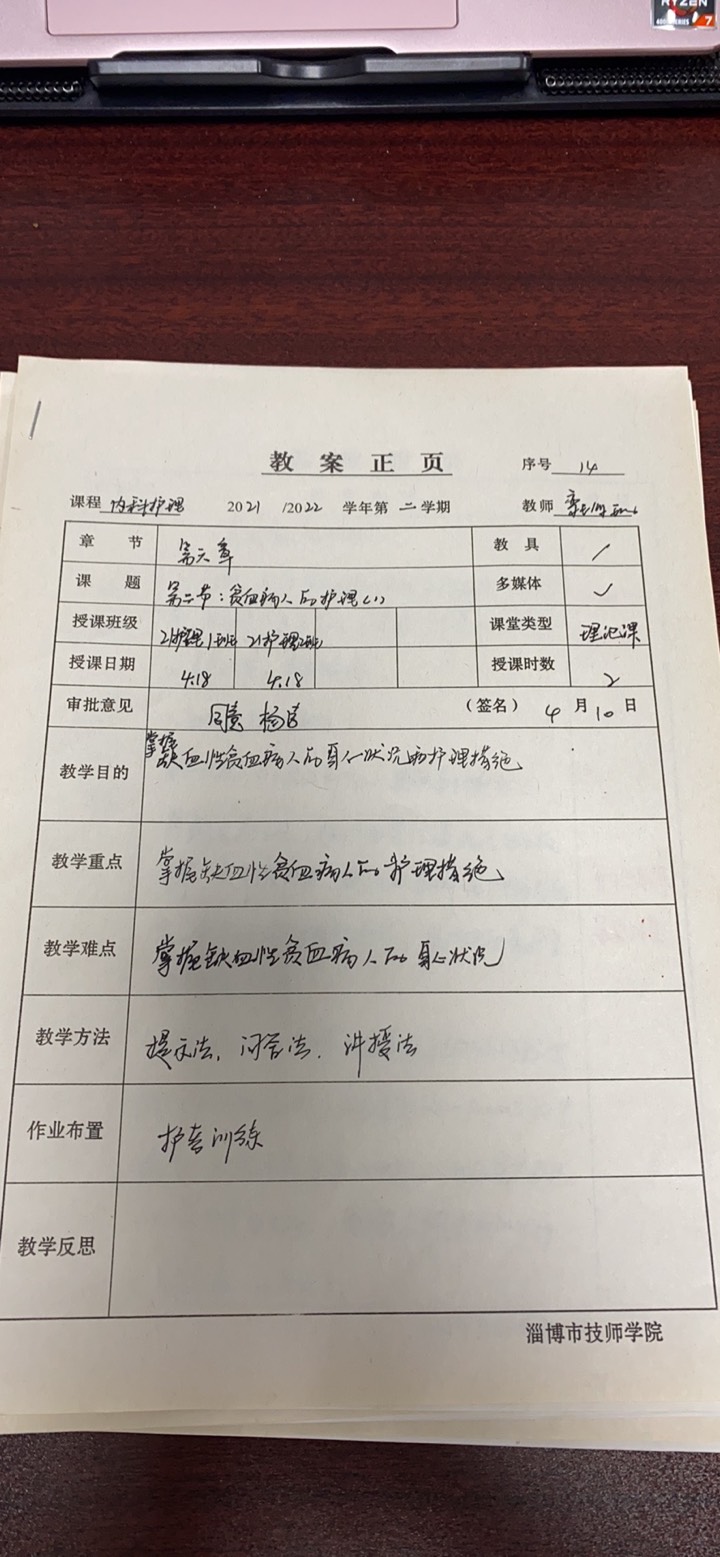 RYZEN
7
教案正页
序号 14
课程 内科护理 2021/2022 学年第二学期 教师
章节 第六章 教具 /
课题 第二节：贫血病人的护理(1) 多媒体 ✓
授课班级 21护理1班 21护理2班 课堂类型 理论课
授课日期 4.18 4.18 授课时数 2
审批意见 同意 (签名) 4月10日
教学目的 掌握缺血性贫血病人的身心状况和护理措施
教学重点 掌握缺血性贫血病人的护理措施
教学难点 掌握缺血性贫血病人的身心状况
教学方法 提示法、问答法、讲授法
作业布置 护考训练
教学反思
淄博市技师学院